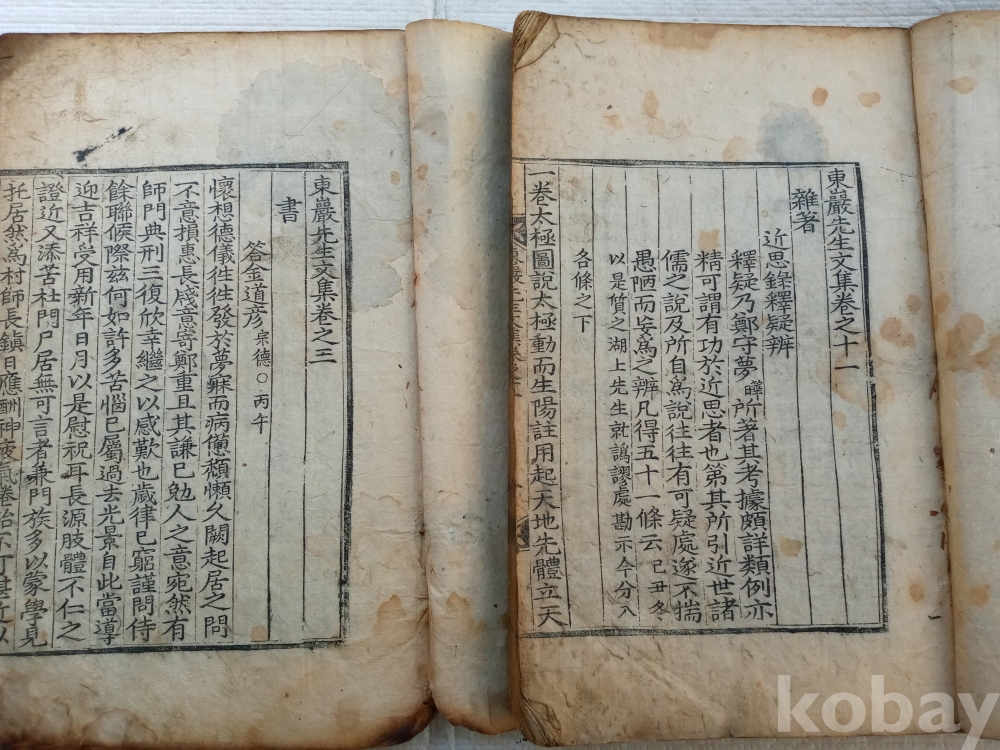 東巖先生文集卷之十一
雜著
近思錄釋疑辨
釋疑乃鄭守夢曄所著其考據頗詳類例亦
精可謂有功於近思者也第其所引近世諸
儒之說及所自爲說往往有可疑處遂不揣
愚陋而妄爲之辨凡得五十一條云己丑冬
以是質之湖上先生就譌謬處勘示今分入
各條之下
一卷太極圖說太極動而生陽註用起天地先體立天
東巖先生文集卷之三
書
答金道彦宗德○丙午
懷想德儀徃徃發於夢寐而病憊頹懶久闕起居之問
不意損惠長牋意寄鄭重且其謙已勉人之意宛然有
師門典刑三復欣幸繼之以感歎也歲律已窮謹問侍
餘聯候際玆何如許多苦惱已屬過去光景自此當導
迎吉祥受用新年日月以是慰祝耳長源肢體不仁之
證近又添苦杜門尸居無可言者兼門族多以蒙學見
托居然爲村師長鎭日應酬神疲氣
kobay